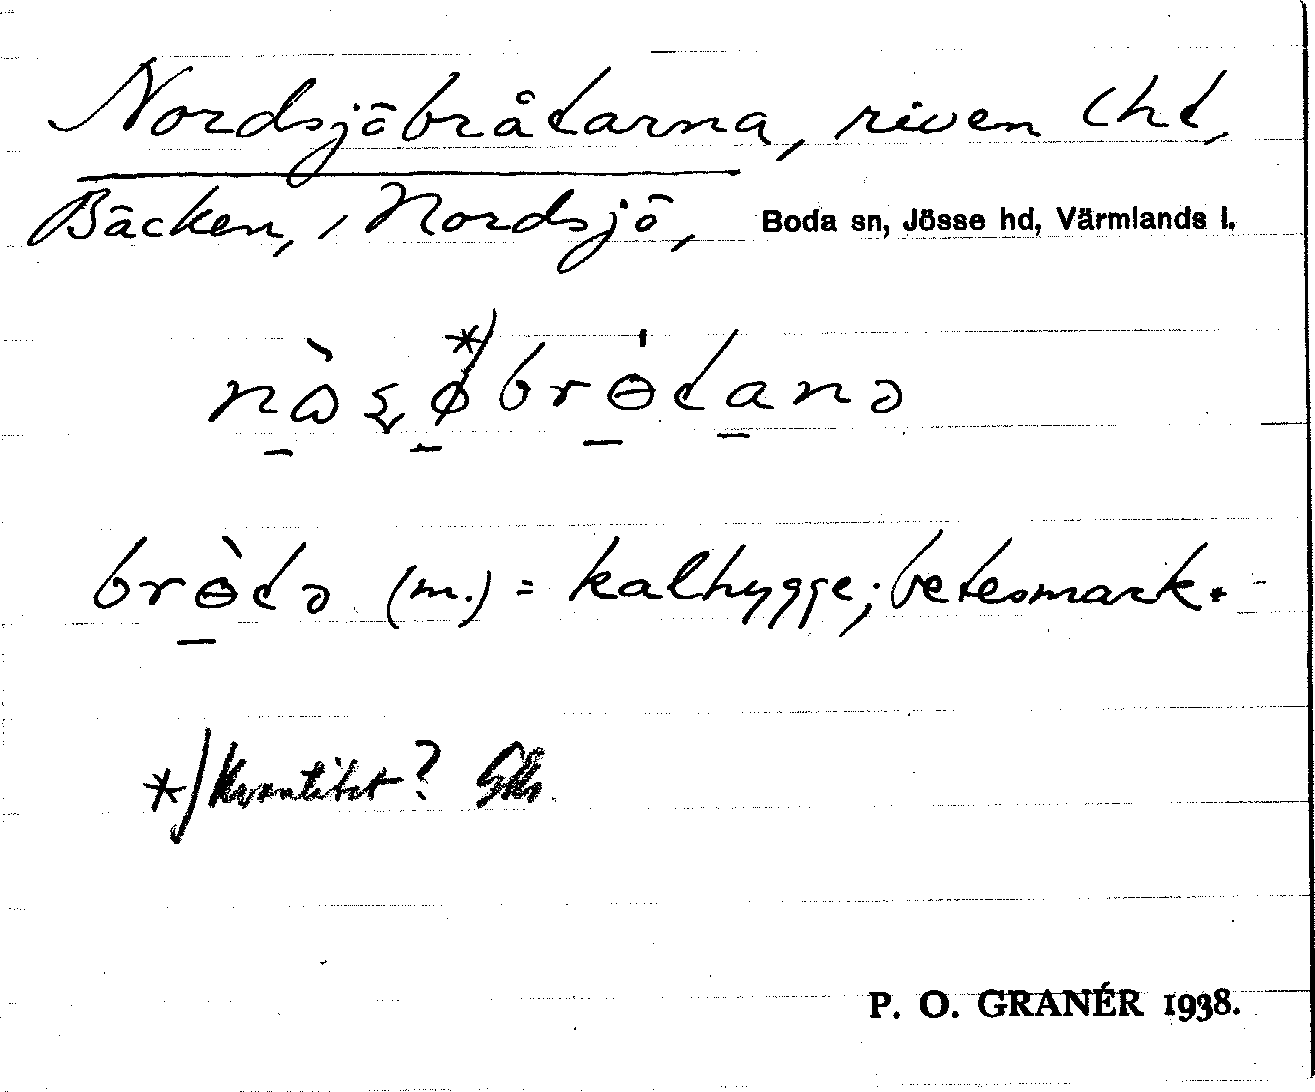 Nordsjöbråtarna, riven lht,
Bäcken, i Nordsjö, Boda sn, Jösse hd, Värmlands l.
bròtə (m.) = kalhygge; betesmark.
*) Kvantitet?
P. O. GRANÉR 1938.